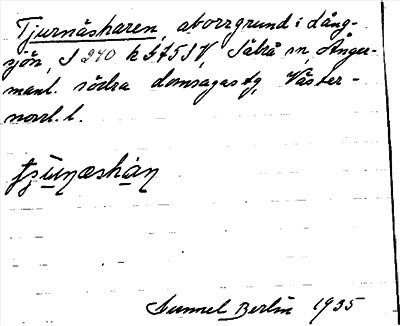 Tjurnäsharen, aborrgrund i Lång-
sjön, S 240 k 5751 V, Säbrå sn, Ånger-
manl. södra domsagas tg, Väster-
norrl. l.
Gunnel Berlin 1935